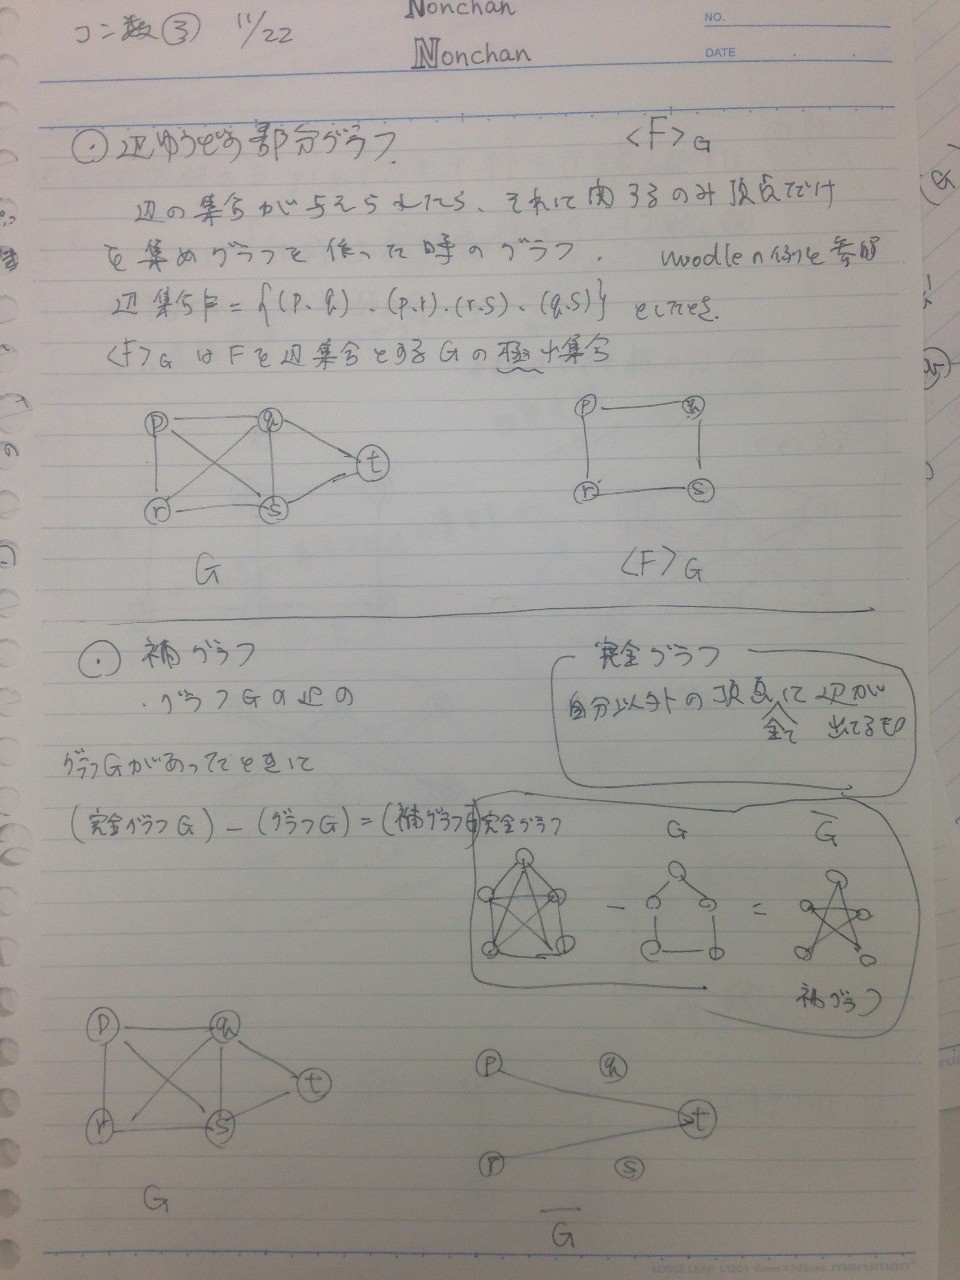 コン数③ 11/22
Nonchan
Nonchan
NO.
DATE
⊙ 辺ゆうどう部分グラフ. <F>G
辺の集合が与えられたら、それに関するのみ頂点だけ
を集めグラフを作った時のグラフ. moodleの例を参照
辺集合F={(p.q).(p.r).(r.s).(q.s)} としたとき.
<F>GはFを辺集合とするGの極小集合
p q t r s
p q r s
G
<F>G
⊙ 補グラフ
・グラフGの辺の
完全グラフ
自分以外の頂点に辺が
全て 出てるもの
グラフGがあってときに
(完全グラフG)-(グラフG)=(補グラフG)
完全グラフ G G̅
- =
補グラフ
p q t r s
p q t r s
G
G̅